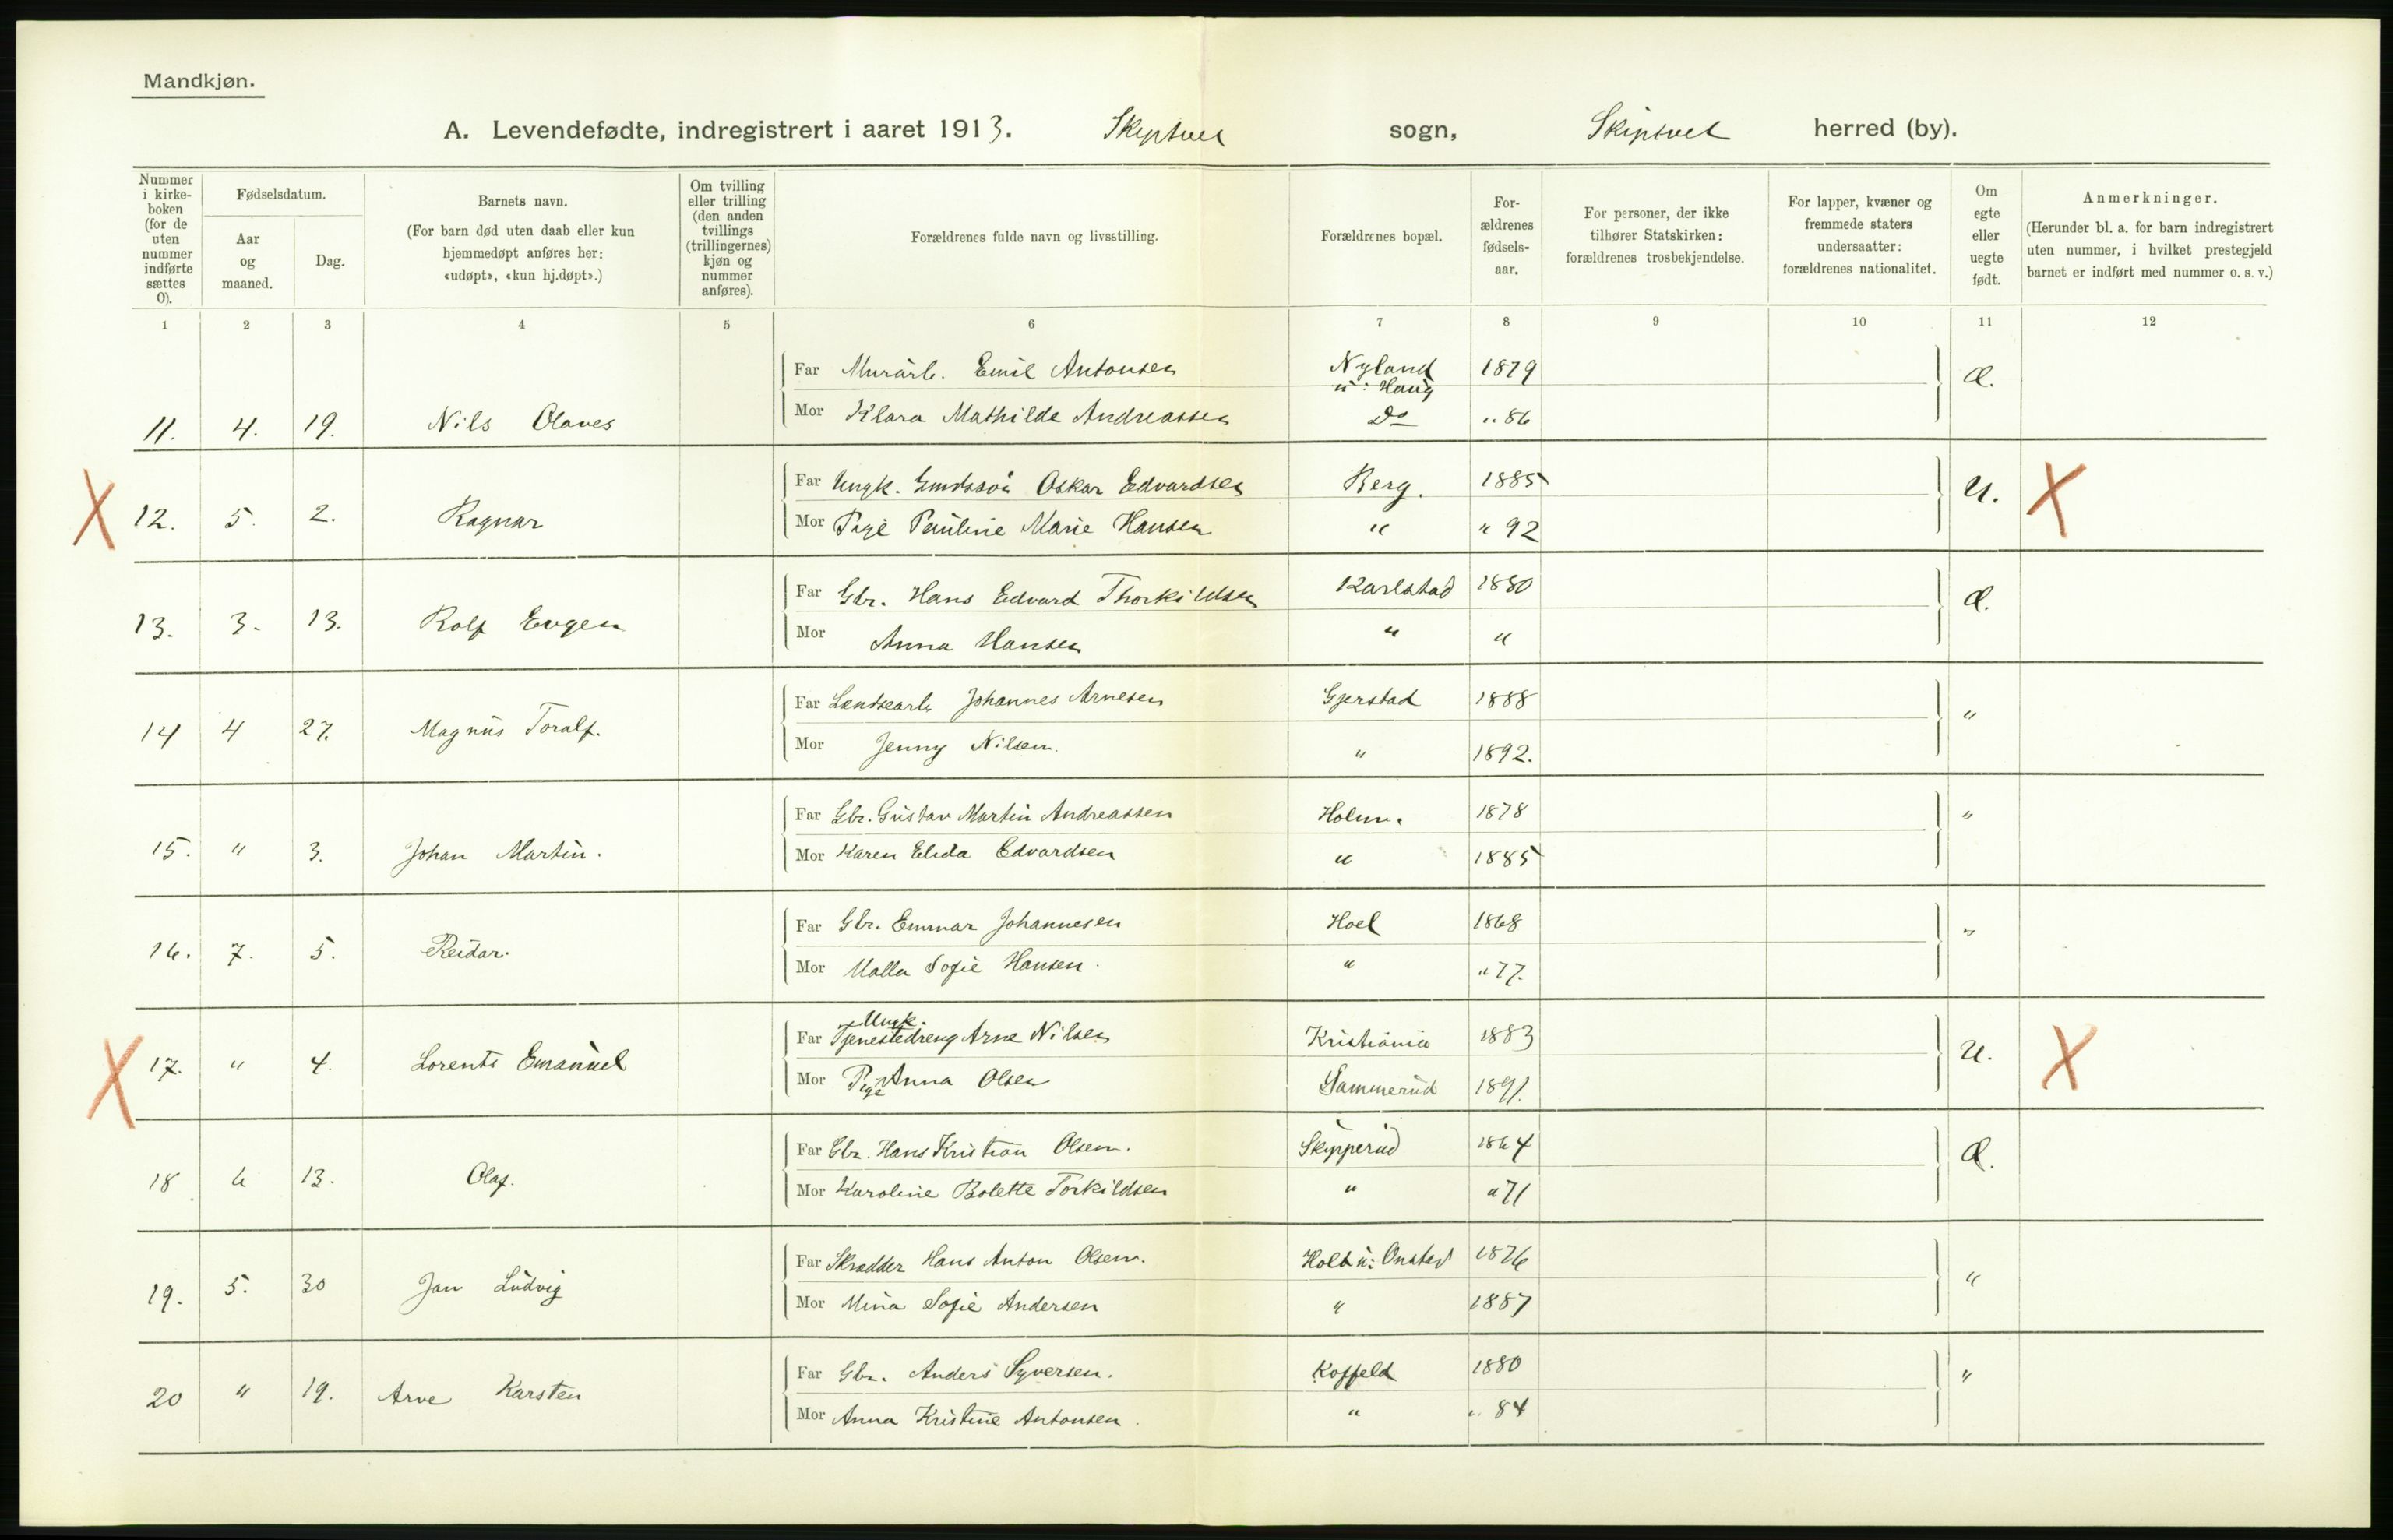 Mandkjøn.
A. Levendefødte, indregistrert i aaret 1913. Skiptvet sogn, Skiptvet herred (by).
Nummer i kirke-boken (for de uten nummer indførte sættes 0).
Fødselsdatum.
Aar og maaned.
Dag.
Barnets navn.
(For barn død uten daab eller kun hjemmedøpt anføres her: «udøpt», «kun hj.døpt».)
Om tvilling eller trilling (den anden tvillings (trillingernes) kjøn og nummer anføres).
Forældrenes fulde navn og livsstilling.
Forældrenes bopæl.
For-ældrenes fødsels-aar.
For personer, der ikke tilhører Statskirken: forældrenes trosbekjendelse.
For lapper, kvæner og fremmede staters undersaatter: forældrenes nationalitet.
Om egte eller uegte født.
Anmerkninger.
(Herunder bl. a. for barn indregistrert uten nummer, i hvilket prestegjeld barnet er indført med nummer o. s. v.)
1 2 3 4 5 6 7 8 9 10 11 12
Far Murarb. Emil Antonsen Nyland u: Haug 1879 Æ.
11. 4. 19. Nils Olaves
Mor Klara Mathilde Andreassen Do " 86
Far Ungk. Oskar Edvardsen Berg. 1885 U. X
X 12. 5. 2. Ragnar
Mor Pige Pauline Marie Hansen " " 92
Far Gbr. Hans Edvard Thorkildsen Karlstad 1880 Æ.
13. 3. 13. Rolf Eugen
Mor Anna Hansen " "
Far Johannes Arnesen Gjerstad 1888 "
14 4 27. Magnus Toralf.
Mor Jenny Nilsen. " 1892.
Far Gbr. Gustav Martin Andreassen Holm. 1878 "
15. " 3. Johan Martin.
Mor Karen Elida Edvardsen " 1885
Far Gbr. Emmar Johannesen Hoel 1868 "
16. 7. 5. Reidar.
Mor Malla Sofie Hansen. " " 77.
Far Ungk. Tjenestedreng Arne Nilsen Kristiania 1883 U. X
X 17. " 4. Lorents Emanuel
Mor Pige Anna Olsen Gammerud 1891.
Far Gbr. Hans Kristian Olsen. Skipperud 1864 Æ.
18 6 13. Olaf.
Mor Karoline Bolette Torkildsen " " 71
Far Skrædder Hans Anton Olsen. Holt u: Onstad 1876 "
19. 5. 30 Jan Ludvig
Mor Mina Sofie Andersen " 1887
Far Gbr. Anders Syversen. Koffeld 1880 "
20 " 19. Arve Karsten
Mor Anna Kristine Antonsen. " " 84